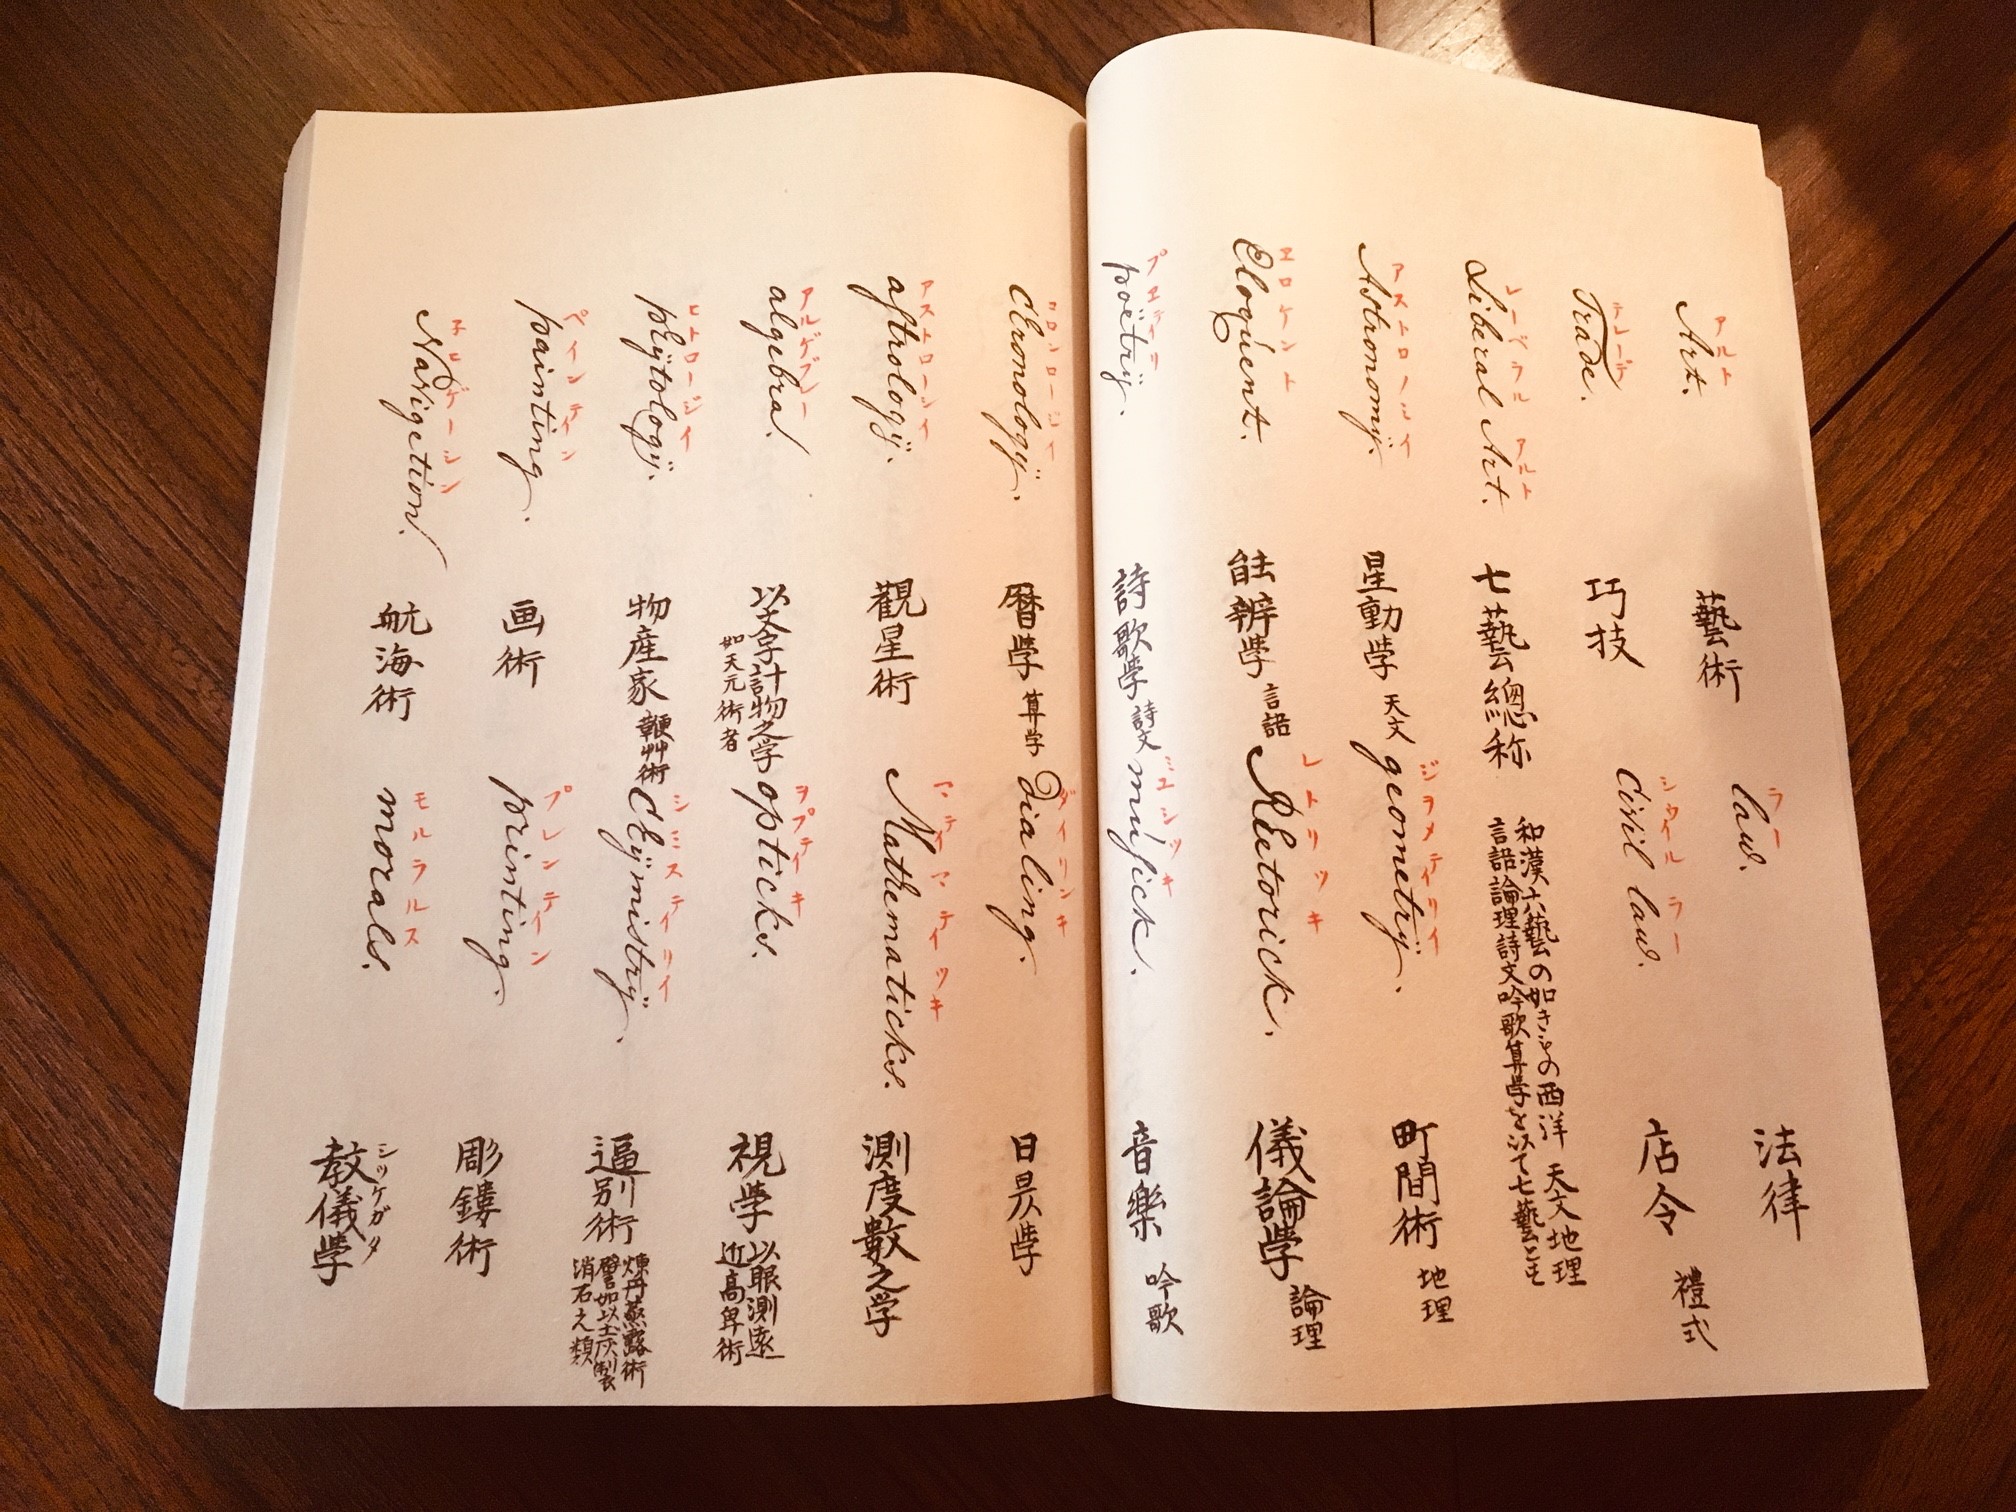 アルト
Art.
藝術
ラー
law.
法律
テレーデ
Trade.
巧技
シウイル ラー
Civil law.
店令 禮式
レーベラル アルト
Liberal Art.
七藝總称
和漢六藝の如きもの西洋 天文地理
言語論理詩文吟歌算学を以て七藝とも
アストロノミイ
Astronomÿ.
星動学 天文
ジヲメテイリイ
geometrÿ.
町間術 地理
エロケント
Eloqúent.
能辨学 言語
レトリツキ
Rhetorick.
儀論学 論理
プヱテイリ
poëtrÿ.
詩歌学 詩文
ミユシツキ
músick.
音樂 吟歌
Chronologÿ.
暦学 算学
ダイリンキ
Dialing.
日晷学
アストローシイ
astrologÿ.
觀星術
マテイマテイツキ
Mathematicks.
測度數之学
アルゲブラー
algebra.
以文字計物之学
如天元術者
ヲプテイキ
opticks.
視学 以眼測遠
近高卑術
ヒトロージイ
phÿtologÿ.
物産家 鞭艸術
シミステイリイ
Chÿmistrÿ.
逼別術 煉丹蒸露術
譬如以土灰製
消石之類
ペインテイン
painting.
画術
プレンテイン
printing.
彫鏤術
ネビゲーシン
Navigetion.
航海術
モルラルス
morals.
教儀学
シツケガタ